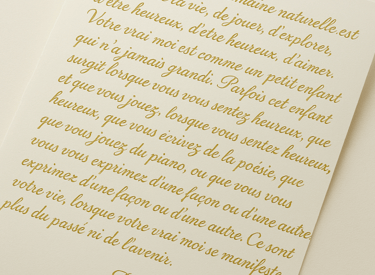 maine naturelle est
la vie, de jouer, d'explorer,
d'être heureux, d'être heureux, d'aimer.
Votre vrai moi est comme un petit enfant
qui n'a jamais grandi. Parfois cet enfant
surgit lorsque vous vous sentez heureux, que
et que vous jouez, lorsque vous sentez heureux,
heureux, que vous écrivez de la poésie, que
que vous jouez du piano, ou que vous vous
vous vous exprimez d'une façon ou d'une autre
exprimez d'une façon ou d'une autre. Ce sont
votre vie, lorsque votre vrai moi se manifeste
plus du passé ni de l'avenir.